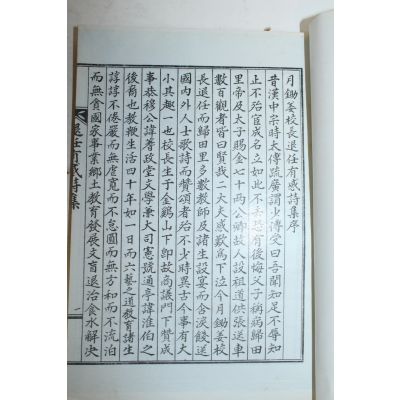 月鋤姜校長退任有感詩集序
昔漢中宗時太傅疏廣謂少傅受曰吾聞知足不辱知
止不殆宦成名立如此不去恐有後悔父子稱病歸田
里帝及太子賜金七十兩公卿故人設祖道供張送車
數百觀者皆曰賢哉二大夫感歎爲下泣今月鋤姜校
長退任而歸田里多數教師及諸生設宴而含淚餞送
國內外人士歌詩而贊頌者殆不少時異古今事有大
小其趣一也校長生于金鷄山下卽故商議門下贊成
事恭穆公諱蓍政堂文學兼大司憲號通亭諱淮伯之
後裔也教鞭生活四十年如一日而六藝之道教育諸生
諄諄不倦嚴而無虐寬而不怠圓而無方和而不流泊
而無貪國家事業鄕土教育發展文首退治食水解決
退任有感詩集
一